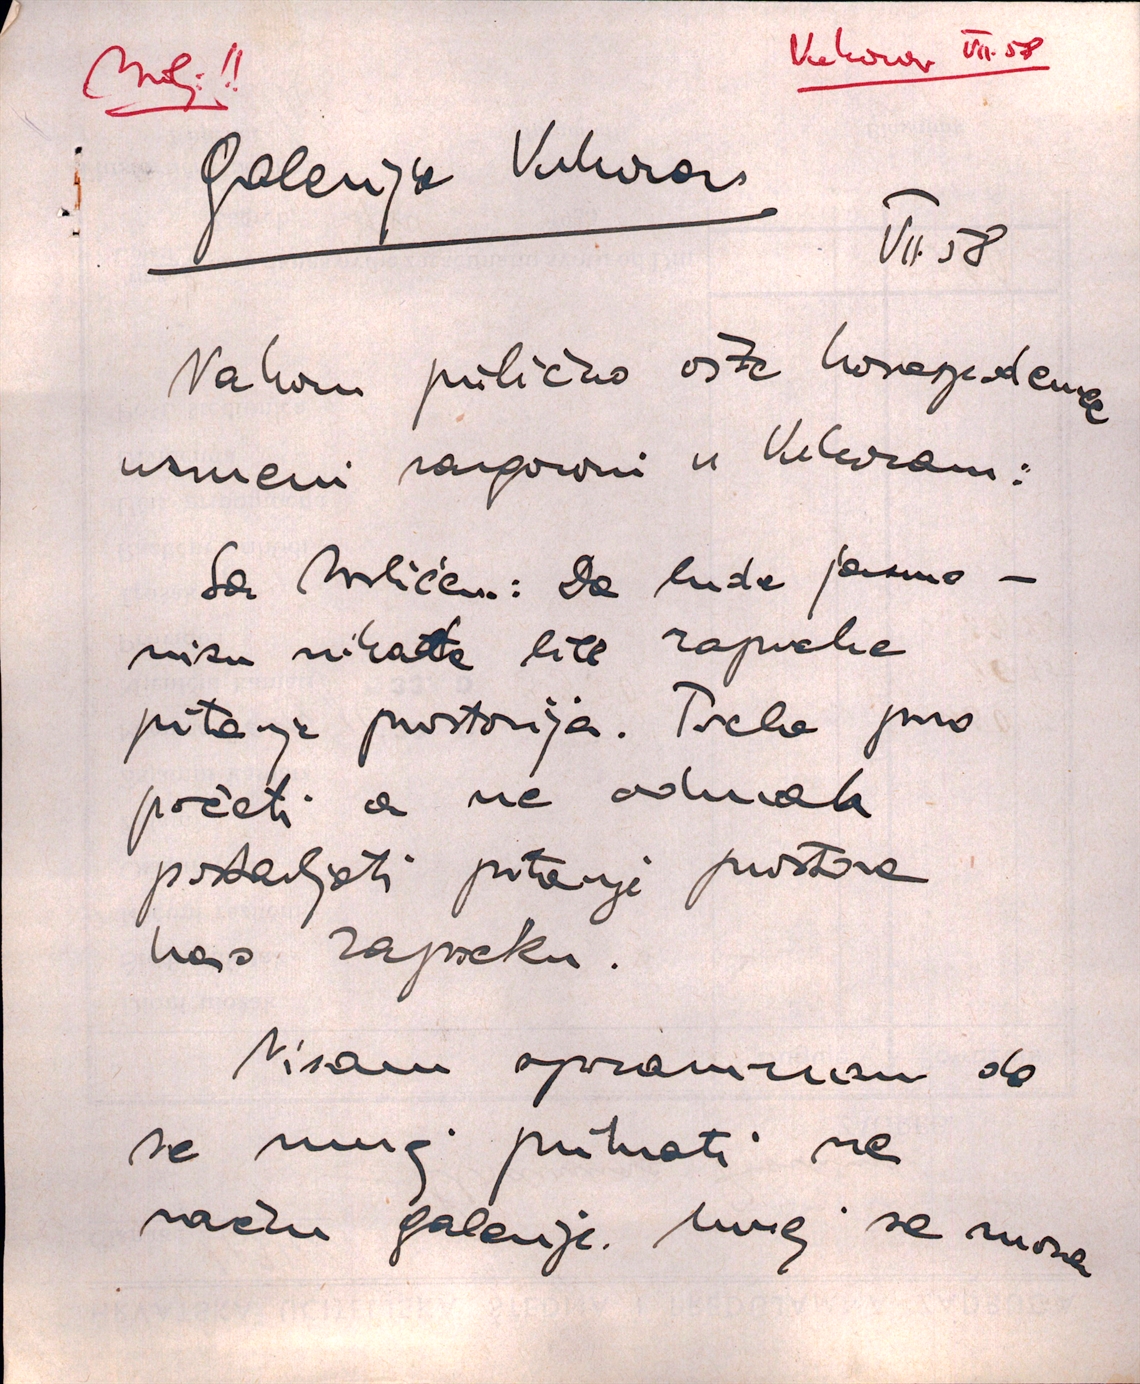 Vukovar VII. 58
Galerija Vukovar
VII. 58
Nakon prilično oštre korespondencije
usmeni razgovori u Vukovaru:
Sa : Da bude jasno –
nisu nikakve bile zapreke
pitanje prostorija. Treba prvo
početi a ne odmah
postavljati pitanje prostora
kao zapreku.
Nisam sporazuman da
se muzej prihvati na
račun galerije. Muzej se mora